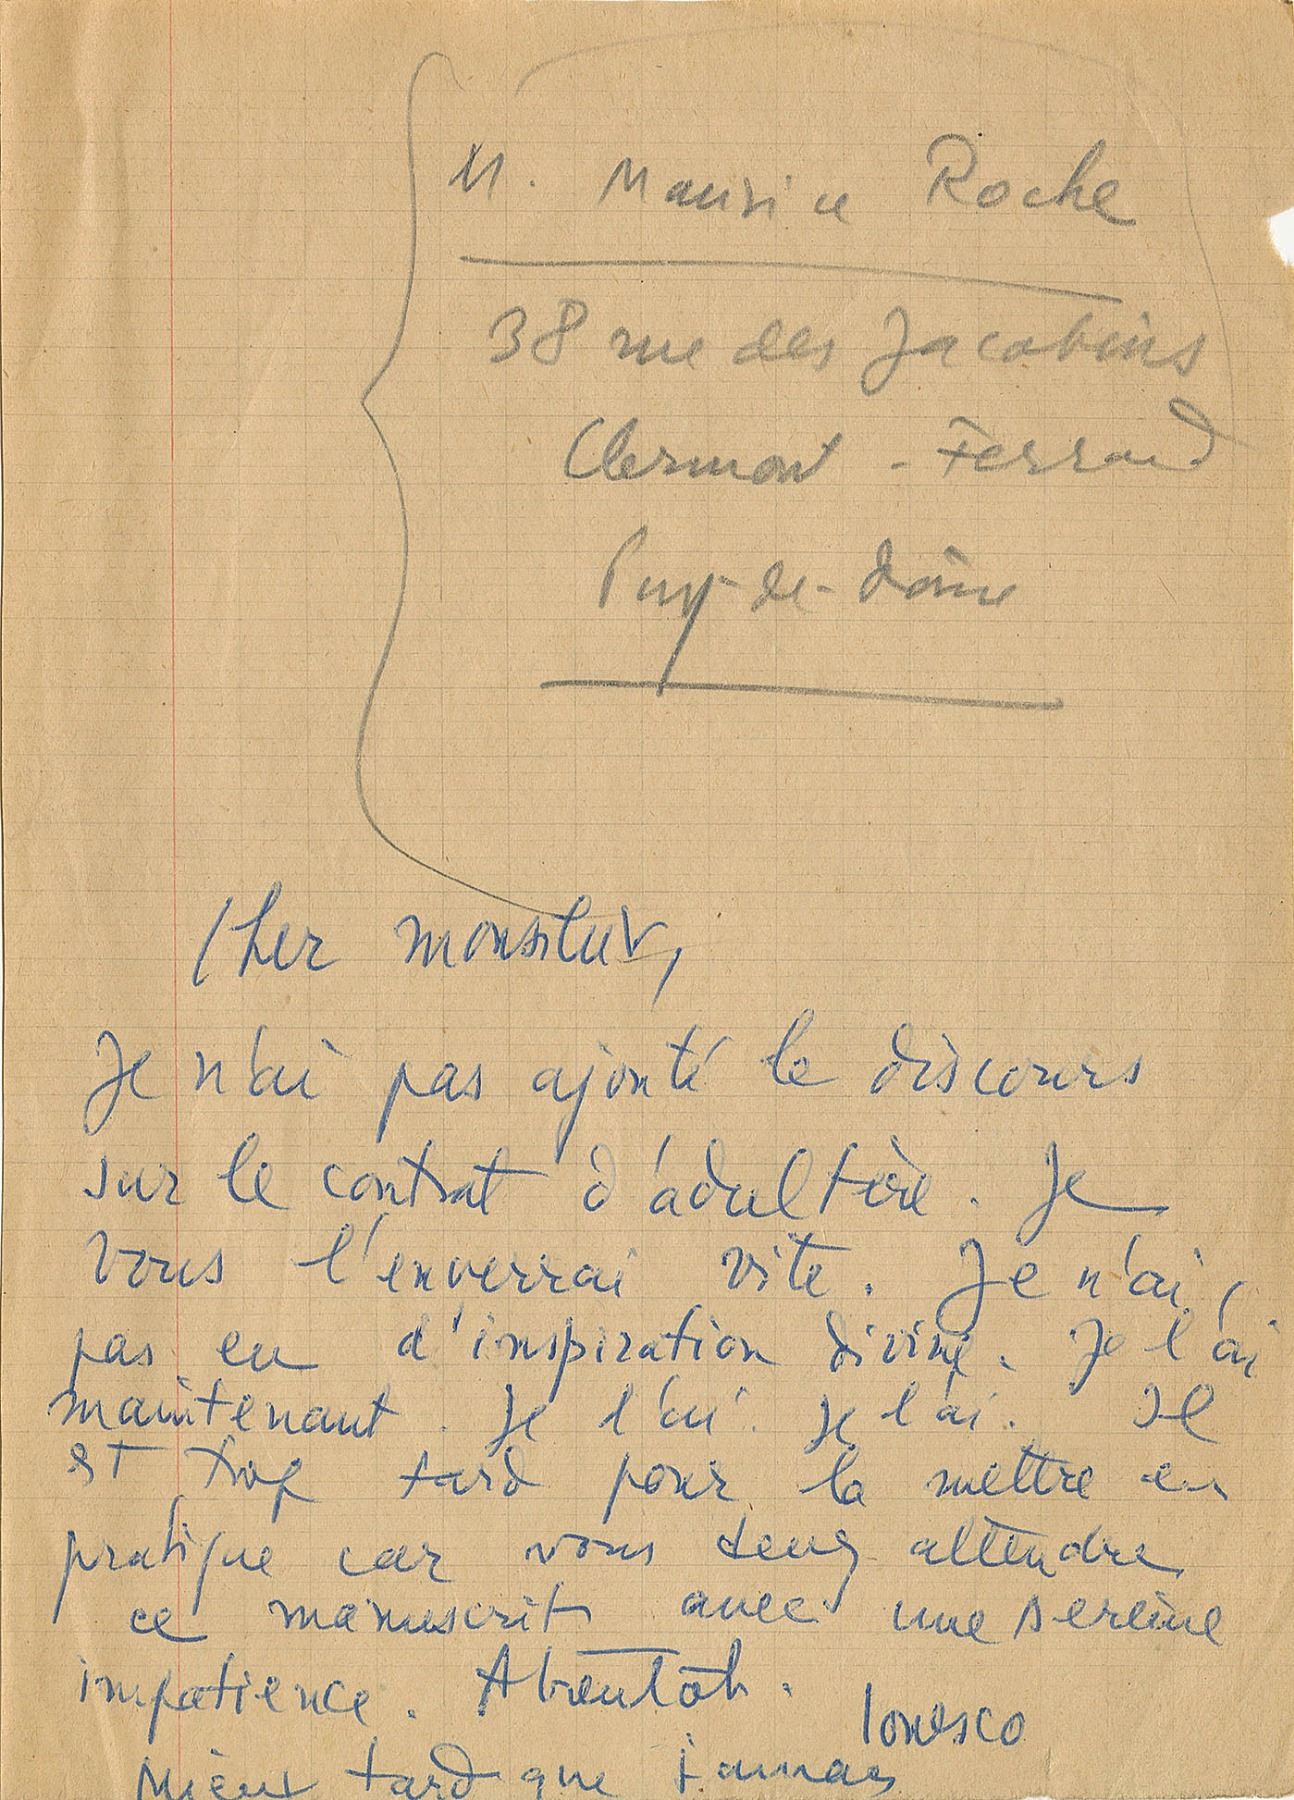 M. Maurice Roche
38 rue des Jacobins
Clermont-Ferrand
Puy-de-dôme
Cher monsieur,
Je n'ai pas ajouté le discours
sur le contrat d'adultère. Je
vous l'enverrai vite. Je n'ai
pas eu d'inspiration divine. Je l'ai
maintenant. Je l'ai. Je l'ai. Il
est trop tard pour la mettre en
pratique car vous devez attendre
ce manuscrit avec une sereine
impatience. A bientôt.
Ionesco
Mieux tard que jamais